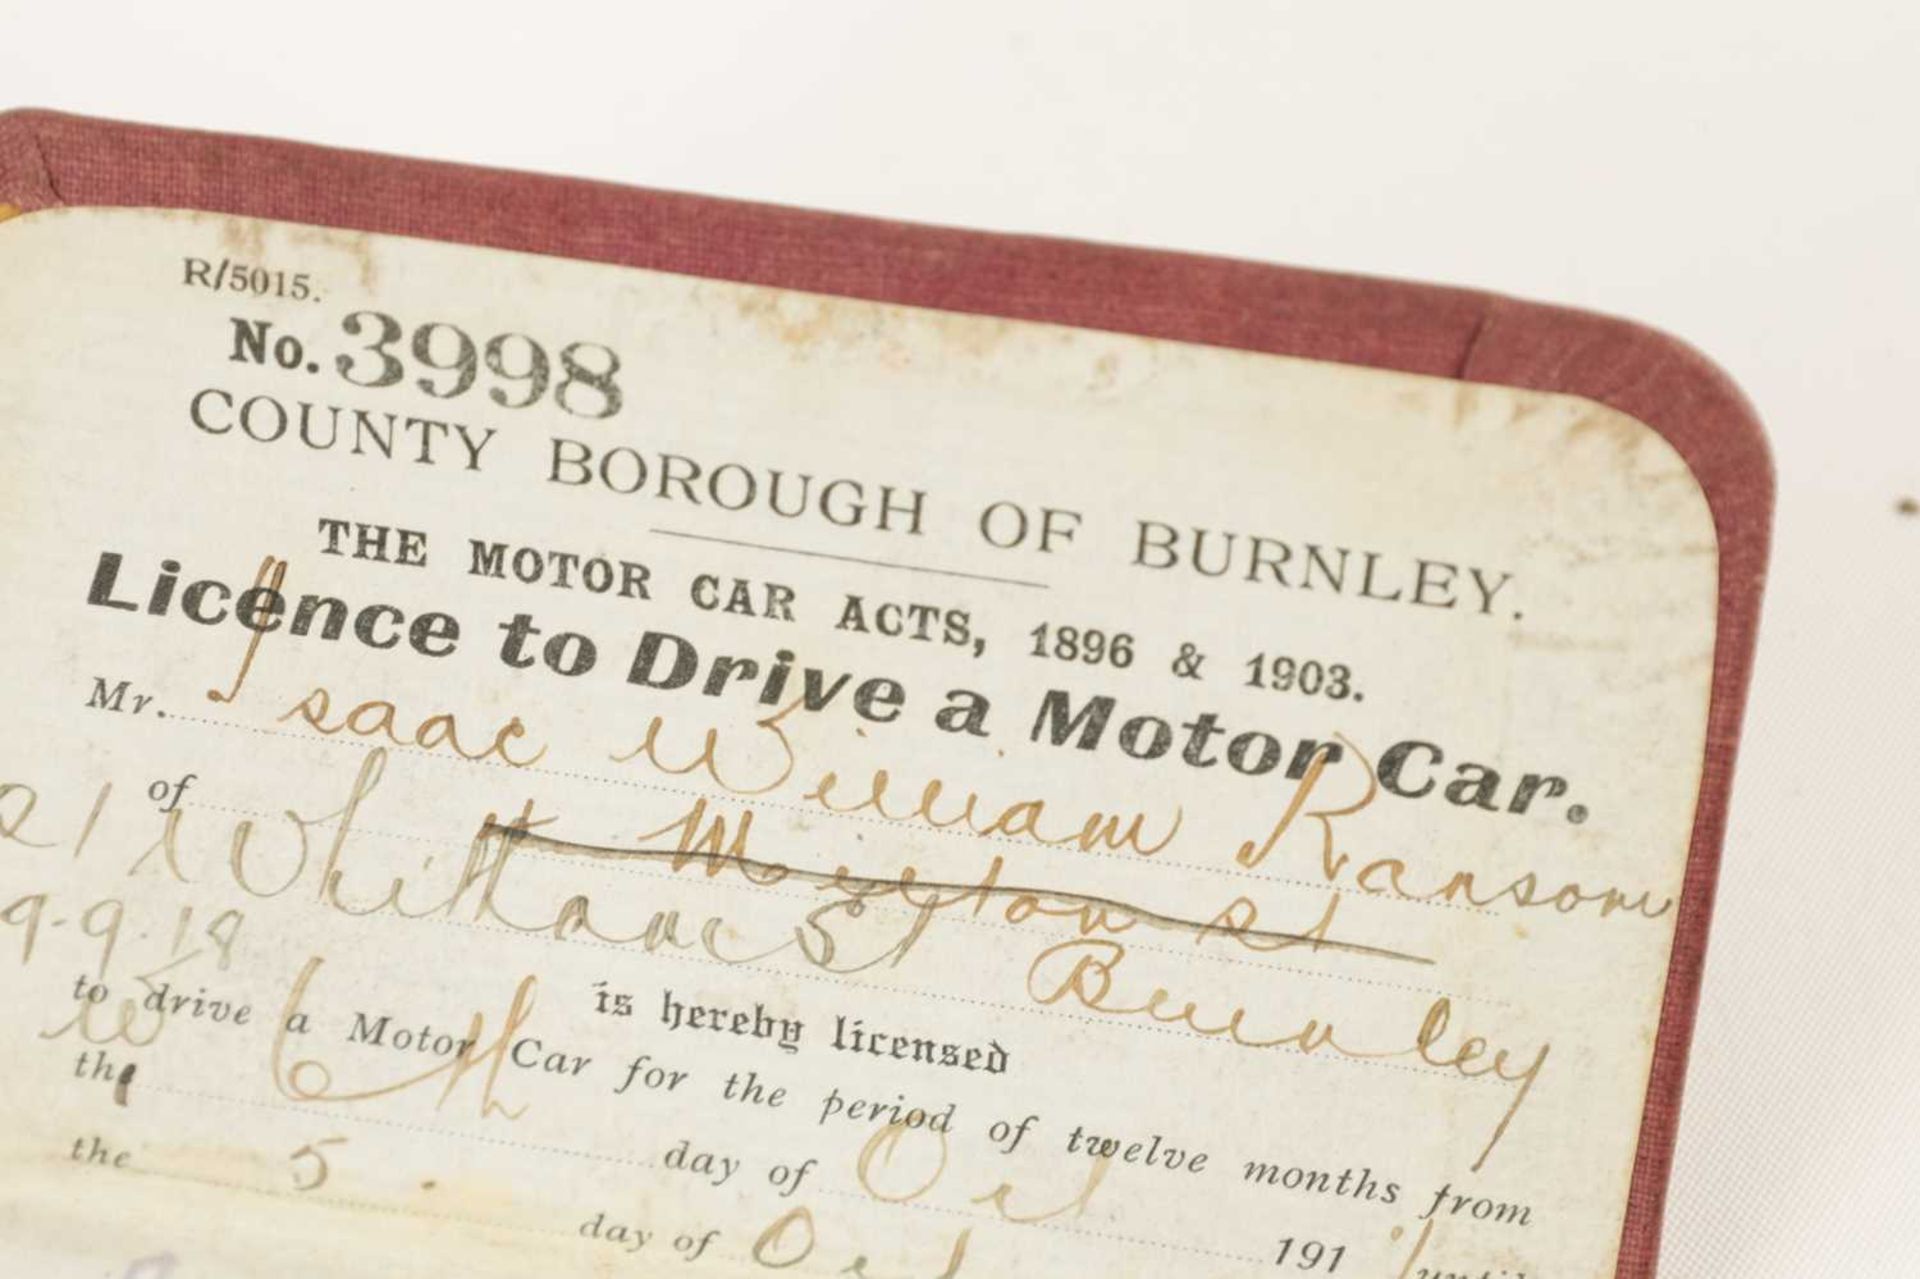 R/5015.
No. 3998
COUNTY BOROUGH OF BURNLEY.
THE MOTOR CAR ACTS, 1896 & 1903.
Licence to Drive a Motor Car.
Mr. Isaac William Ransom
of St
21 St Burnley
9-9-18
is hereby licensed
to drive a Motor Car for the period of twelve months from
the 6th day of Oct 191 until
the 5 day of Oct